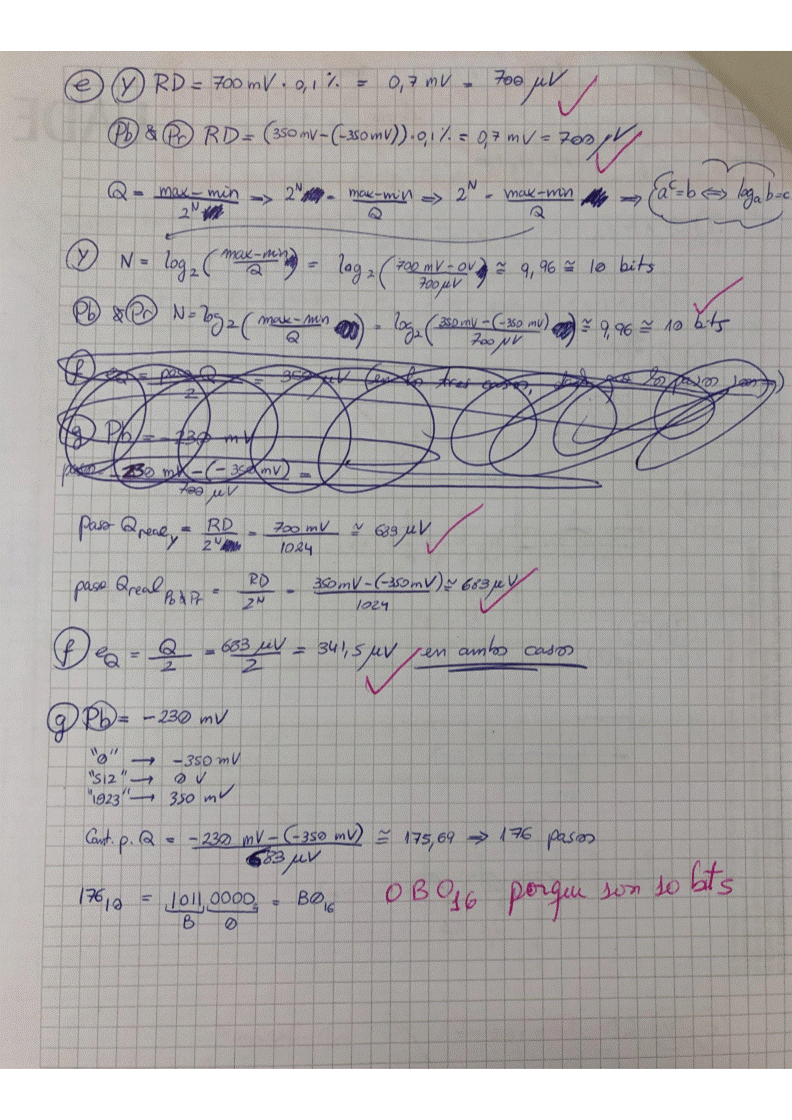 e) Y RD = 700 mV · 0,1% = 0,7 mV = 700 μV
Pb & Pr RD = (350 mV - (-350 mV)) · 0,1% = 0,7 mV = 700 μV
Q = max-min / 2^N => 2^N = max-min / Q => 2^N = max-min / Q => {a^c = b <=> log_a b = c
Y N = log₂(max-min / Q) = log₂(700 mV - 0V / 700 μV) ≅ 9,96 ≅ 10 bits
Pb & Pr N = log₂(max-min / Q) = log₂(350 mV - (-350 mV) / 700 μV) ≅ 9,96 ≅ 10 bits
f) e_Q = paso Q / 2 = 350 μV (en los tres casos,
g) Pb = -230 mV
-230 mV - (-350 mV) / 700 μV =
paso Qreal_Y = RD / 2^N = 700 mV / 1024 ≅ 683 μV
paso Qreal_Pb&Pr = RD / 2^N = 350 mV - (-350 mV) / 1024 ≅ 683 μV
f) e_Q = Q / 2 = 683 μV / 2 = 341,5 μV en ambos casos
g) Pb = -230 mV
"0" → -350 mV
"512" → 0 V
"1023" → 350 mV
Cant. p. Q = -230 mV - (-350 mV) / 683 μV ≅ 175,69 => 176 pasos
176₁₀ = 1011 0000₂ = B0₁₆ 0B0₁₆ porque son 10 bts
B 0